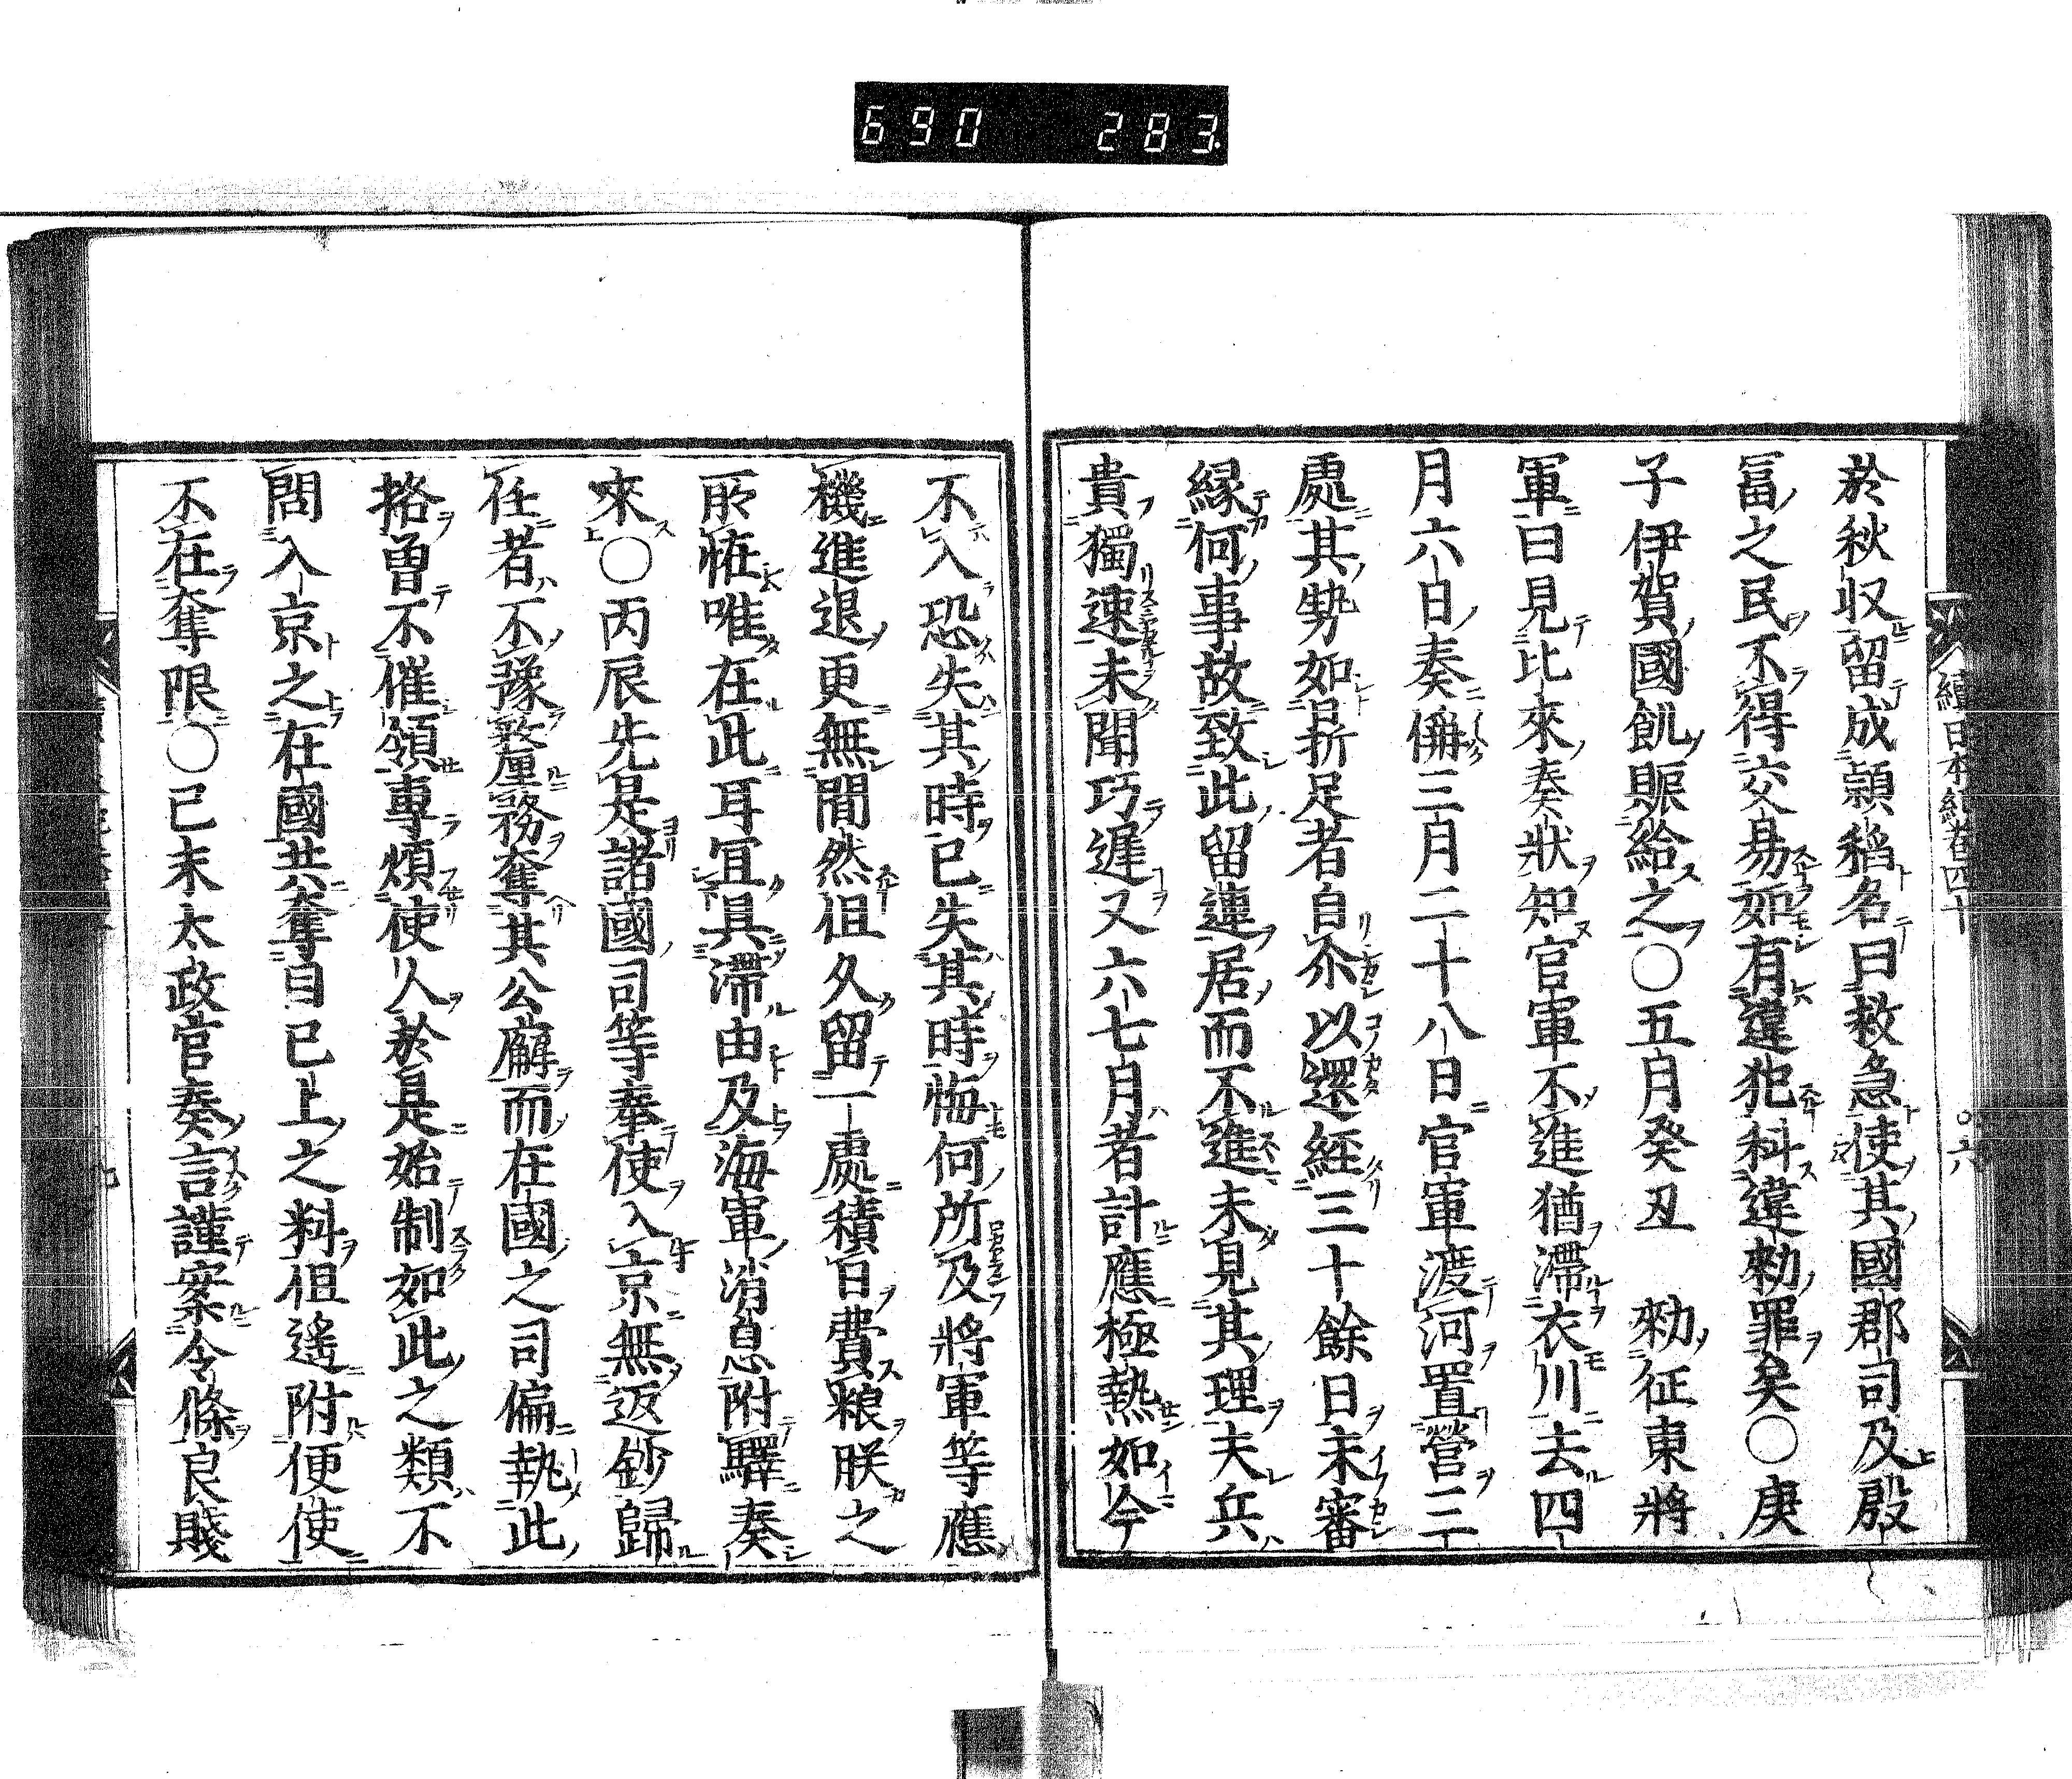 690 283
續日本紀卷四十 〇六
於秋収留成頴稻名曰救急使其國郡司及殷
冨之民不得交易如有違犯科違勑罪矣〇庚
子伊賀國飢賑給之〇五月癸丑 勑征東將
軍曰見比來奏狀知官軍不進猶滯衣川去四
月六日奏偁三月二十八日官軍渡河置營三
處其勢如㫁足者自尒以還經三十餘日未審
縁何事故致此留連居而不進未見其理夫兵
貴獨速未聞巧遲又六七月者計應極熱如今
不入恐失其時已失其時悔何所及將軍等應
機進退更無間然但久留一處積日費粮朕之
所恠唯在此耳冝具滯由及海軍消息附驛奏
來〇丙辰先是諸國司等奉使入京無返鈔歸
任者不預釐務奪其公廨而在國之司偏執此
挌曽不催領專煩使人於是始制如此之類不
問入京之在國共奪目已上之料但遙附便使
不在奪限〇己未太政官奏言謹案令條良賎